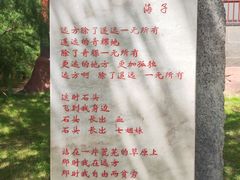 海子
远方除了遥远一无所有
遥远的青稞地
除了青稞一无所有
更远的地方 更加孤独
远方啊 除了遥远 一无所有
这时石头
飞到我身边
石头 长出 血
石头 长出 七姐妹
站在一片荒芜的草原上
那时我在远方
那时我自由而贫穷